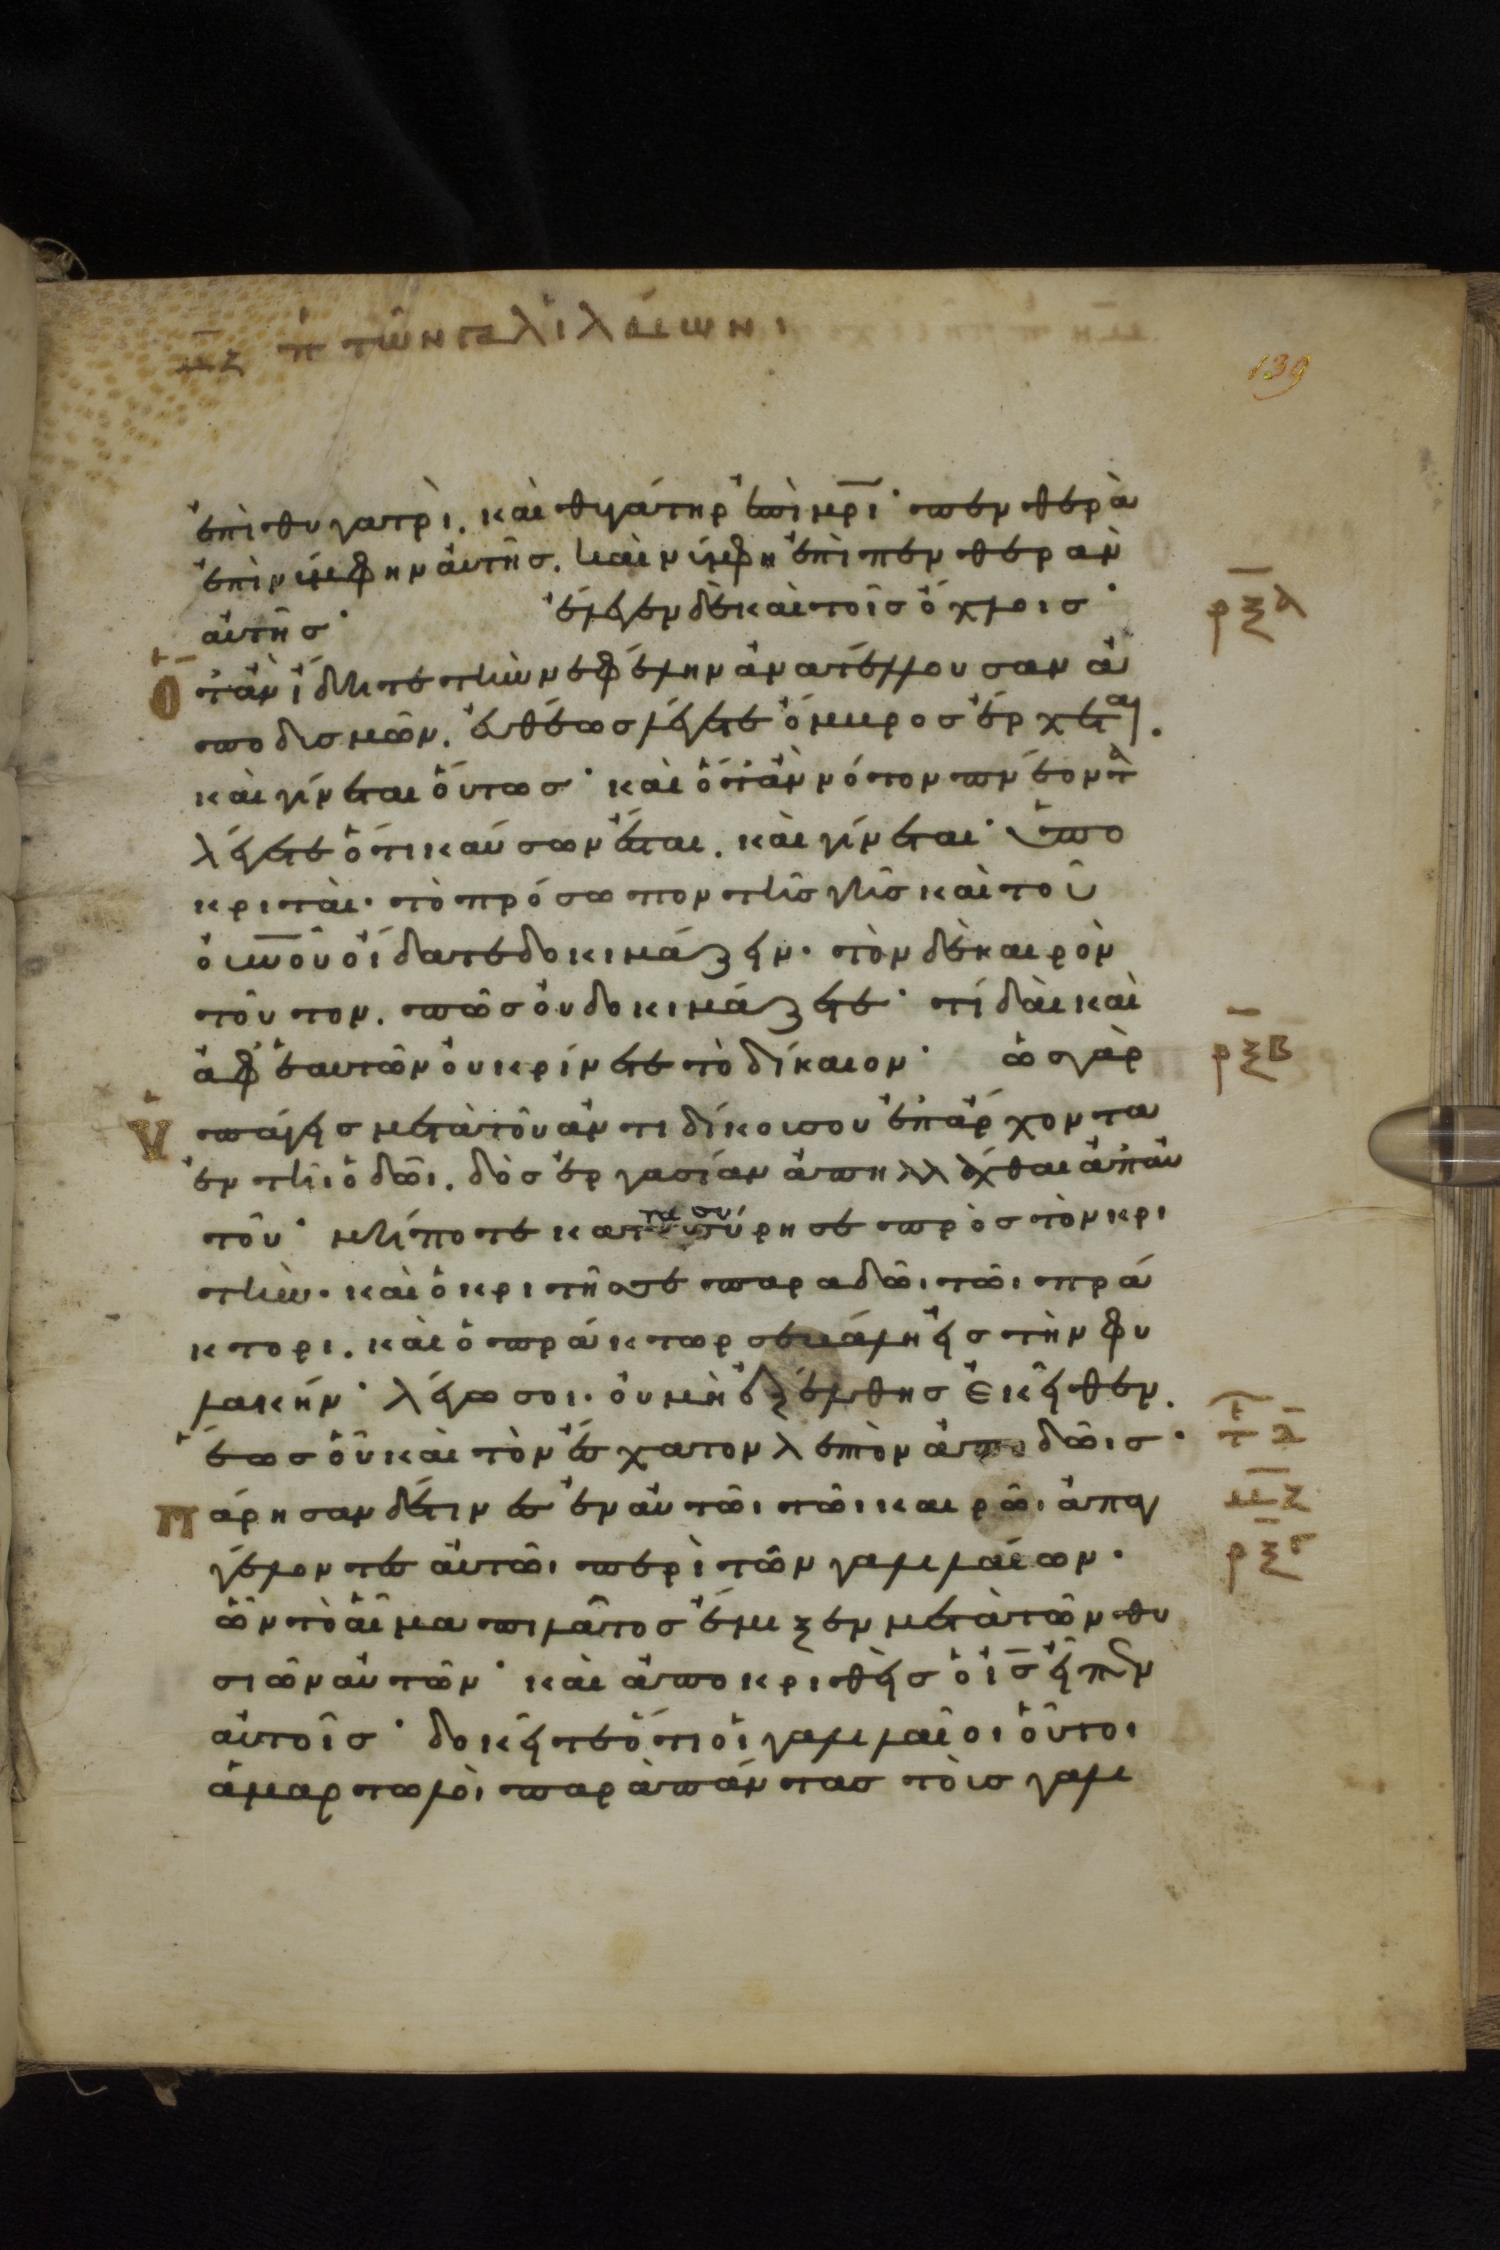 μζ π τῶν γαλιλαίων
139
ἐπὶ θυγατρὶ. καὶ θυγάτηρ ἐπὶ μρῑ· πενθερὰ
ἐπὶ νύμφην αὐτῆς. καὶ νύμφη ἐπὶ πενθερὰν
αὐτῆς· ἔλεγεν δὲ καὶ τοῖς ὄχλοις·
ρξα
ὅταν ἴδητε τὴν νεφέλην ἀνατέλλουσαν ἀ
πο δισμῶν. ἐυθέως λέγετε ὄμβρος ἔρχεται.
καὶ γίνεται οὕτως· καὶ ὅταν νότον πνέοντα
λέγετε ὅτι καύσων ἔται. καὶ γίνεται· ὑπο
κριταὶ· τὸ πρόσωπον τῆς γῆς καὶ τοῦ
οὐνοῦ οἴδατε δοκιμάζειν· τὸν δὲ καιρὸν
τοῦτον. πῶς οὐ δοκιμάζετε· τί δαὶ καὶ
ἀφ ἑαυτῶν οὐ κρίνετε τὸ δίκαιον· ὡς γὰρ
ρξβ
ὑπάγεις μετὰ τοῦ ἀντιδίκοι σου ἐπ ἄρχοντα
ἐν τῆι ὁδῶι. δὸς ἐργασίαν ἀπηλλάχθαι ἀπ αὐ
τοῦ· μήποτε κατασύρη σε πρὸς τὸν κρι
τὴν· καὶ ὁ κριτῆς σε παραδῶι τῶι πρά
κτορι. καὶ ὁ πράκτωρ σε βάλη εἰς τὴν φυ
λακήν· λέγω σοι· οὐ μὴ ἐξέλθης ἐκεῖθεν.
ἕως οὗ καὶ τὸν ἔσχατον λεπτὸν ἀποδῶις·
μζ
ρξγ
Πάρησαν δέ τινες ἐν αὐτῶι τῶι καιρῶι ἀπαγ
γέλοντες αὐτῶι περὶ τῶν γαλιλαίων·
ὧν τὸ αἷμα πιλᾶτος ἔμιξεν μετὰ τῶν θυ
σιῶν αὐτῶν· καὶ ἀποκριθεὶς ὁ ις εἶπεν
αὐτοῖς· δοκεῖτε ὅτι οἱ γαλιλαῖοι οὗτοι
ἁμαρτωλοὶ παρὰ πάντας τοὺς γαλι